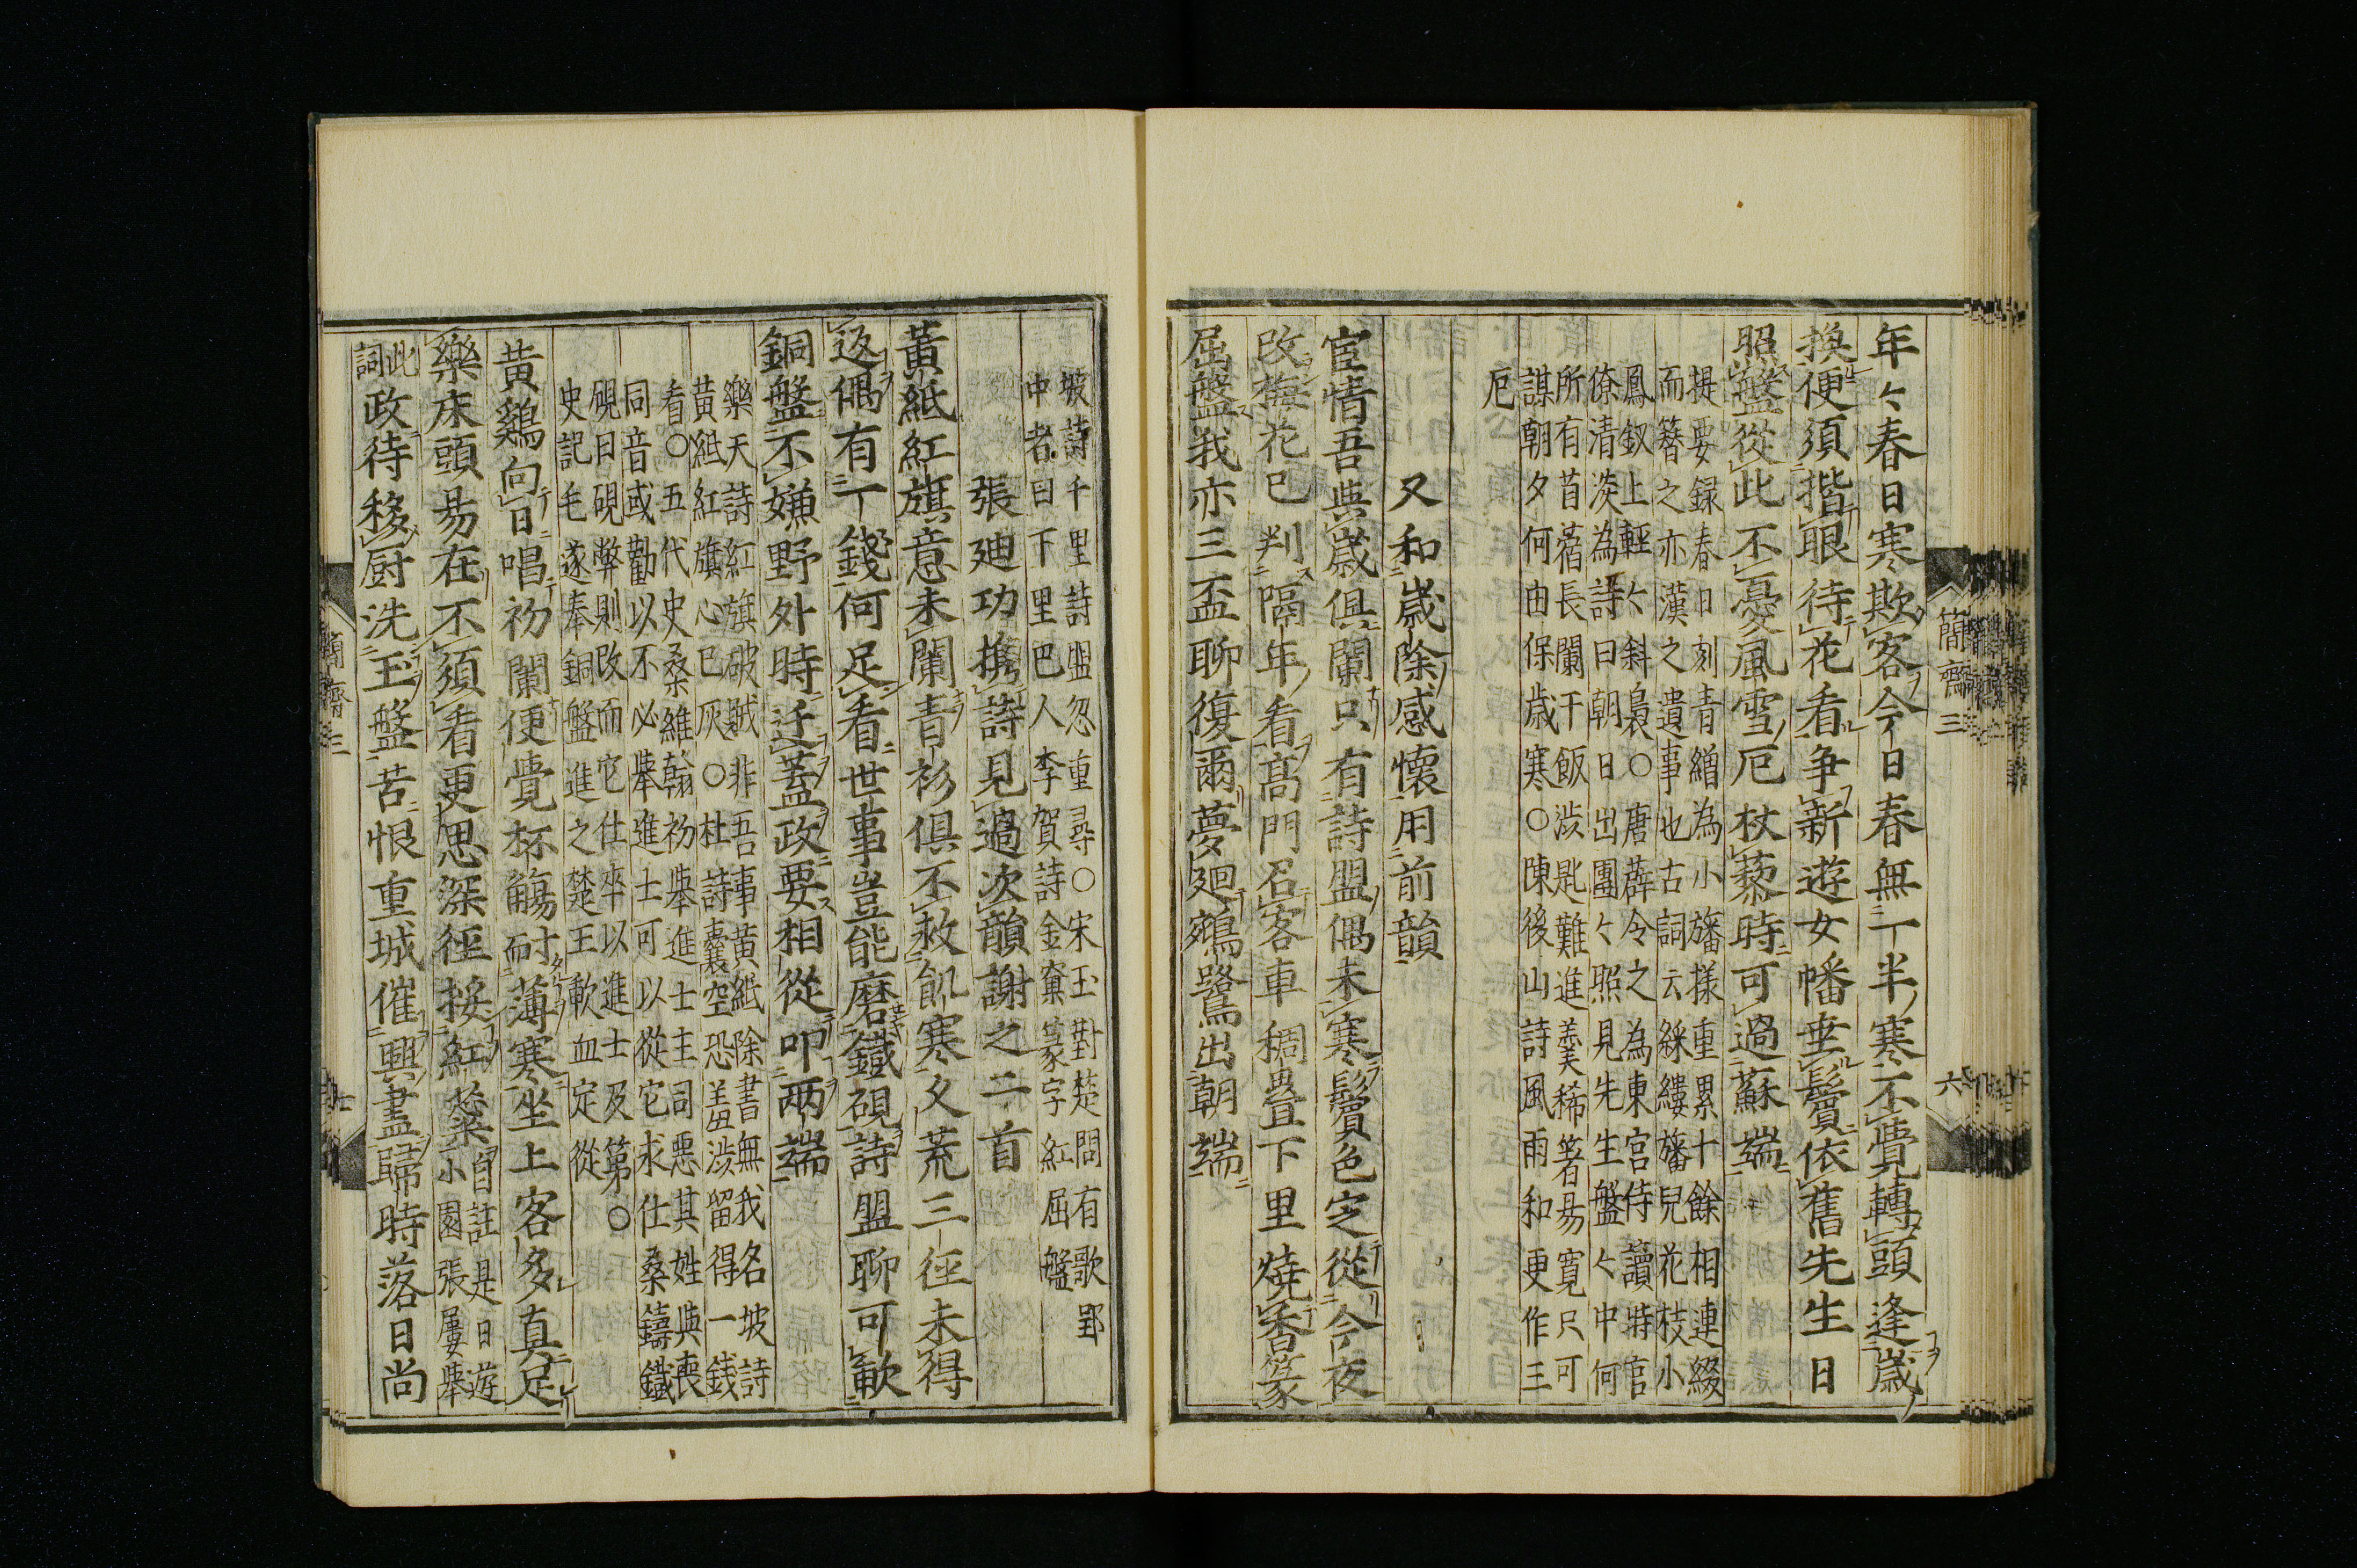 年々春日寒欺客今日春無一半寒不覺轉頭逢歲
換便須揩眼待花看争新遊女幡垂鬢依舊先生日
照盤從此不憂風雪厄杖藜時可過蘇端
提要録春日刻青繒為小旛樣重累十餘相連綴
而簪之亦漢之遺事也古詞云綵縷旛兒花枝小
鳳釵上輕々斜裊○唐薛令之為東宮侍讀時官
僚清淡為詩曰朝日出團々照見先生盤々中何
所有苜蓿長闌干飯澁匙難進羹稀筯易寬只可
謀朝夕何由保歲寒○陳後山詩風雨和更作三
厄
又和歲除感懷用前韻
宦情吾與歲俱闌只有詩盟偶未寒鬢色定從今夜
改梅花已判隔年看高門召客車稠疊下里燒香篆
屈盤我亦三盃聊復爾夢廻鵷鷺出朝端
坡詩千里詩盟忽重尋○宋玉對楚問有歌郢
中者曰下里巴人李賀詩金窠篆字紅屈盤
張廸功攜詩見過次韻謝之二首
黃紙紅旗意未闌青衫俱不救飢寒久荒三徑未得
返偶有一錢何足看世事豈能磨鐵硯詩盟聊可歃
銅盤不嫌野外時迂蓋政要相從叩兩端
樂天詩紅旗破賊非吾事黃紙除書無我名坡詩
黃紙紅旗心已灰○杜詩囊空恐羞澁留得一錢
看○五代史桑維翰初舉進士主司惡其姓與喪
同音或勸以不必舉進士可以從它求仕桑鑄鐵
硯曰硯弊則改而它仕卒以進士及第○
史記毛遂奉銅盤進之楚王歃血定從
黃鷄向日唱初闌便覺杯觴耐薄寒坐上客多真足
樂床頭易在不須看更思深徑挼紅蘂自註是日遊小園張屢舉
此詞政待移厨洗玉盤苦恨重城催興盡歸時落日尚
簡齋三
六
簡齋三
七